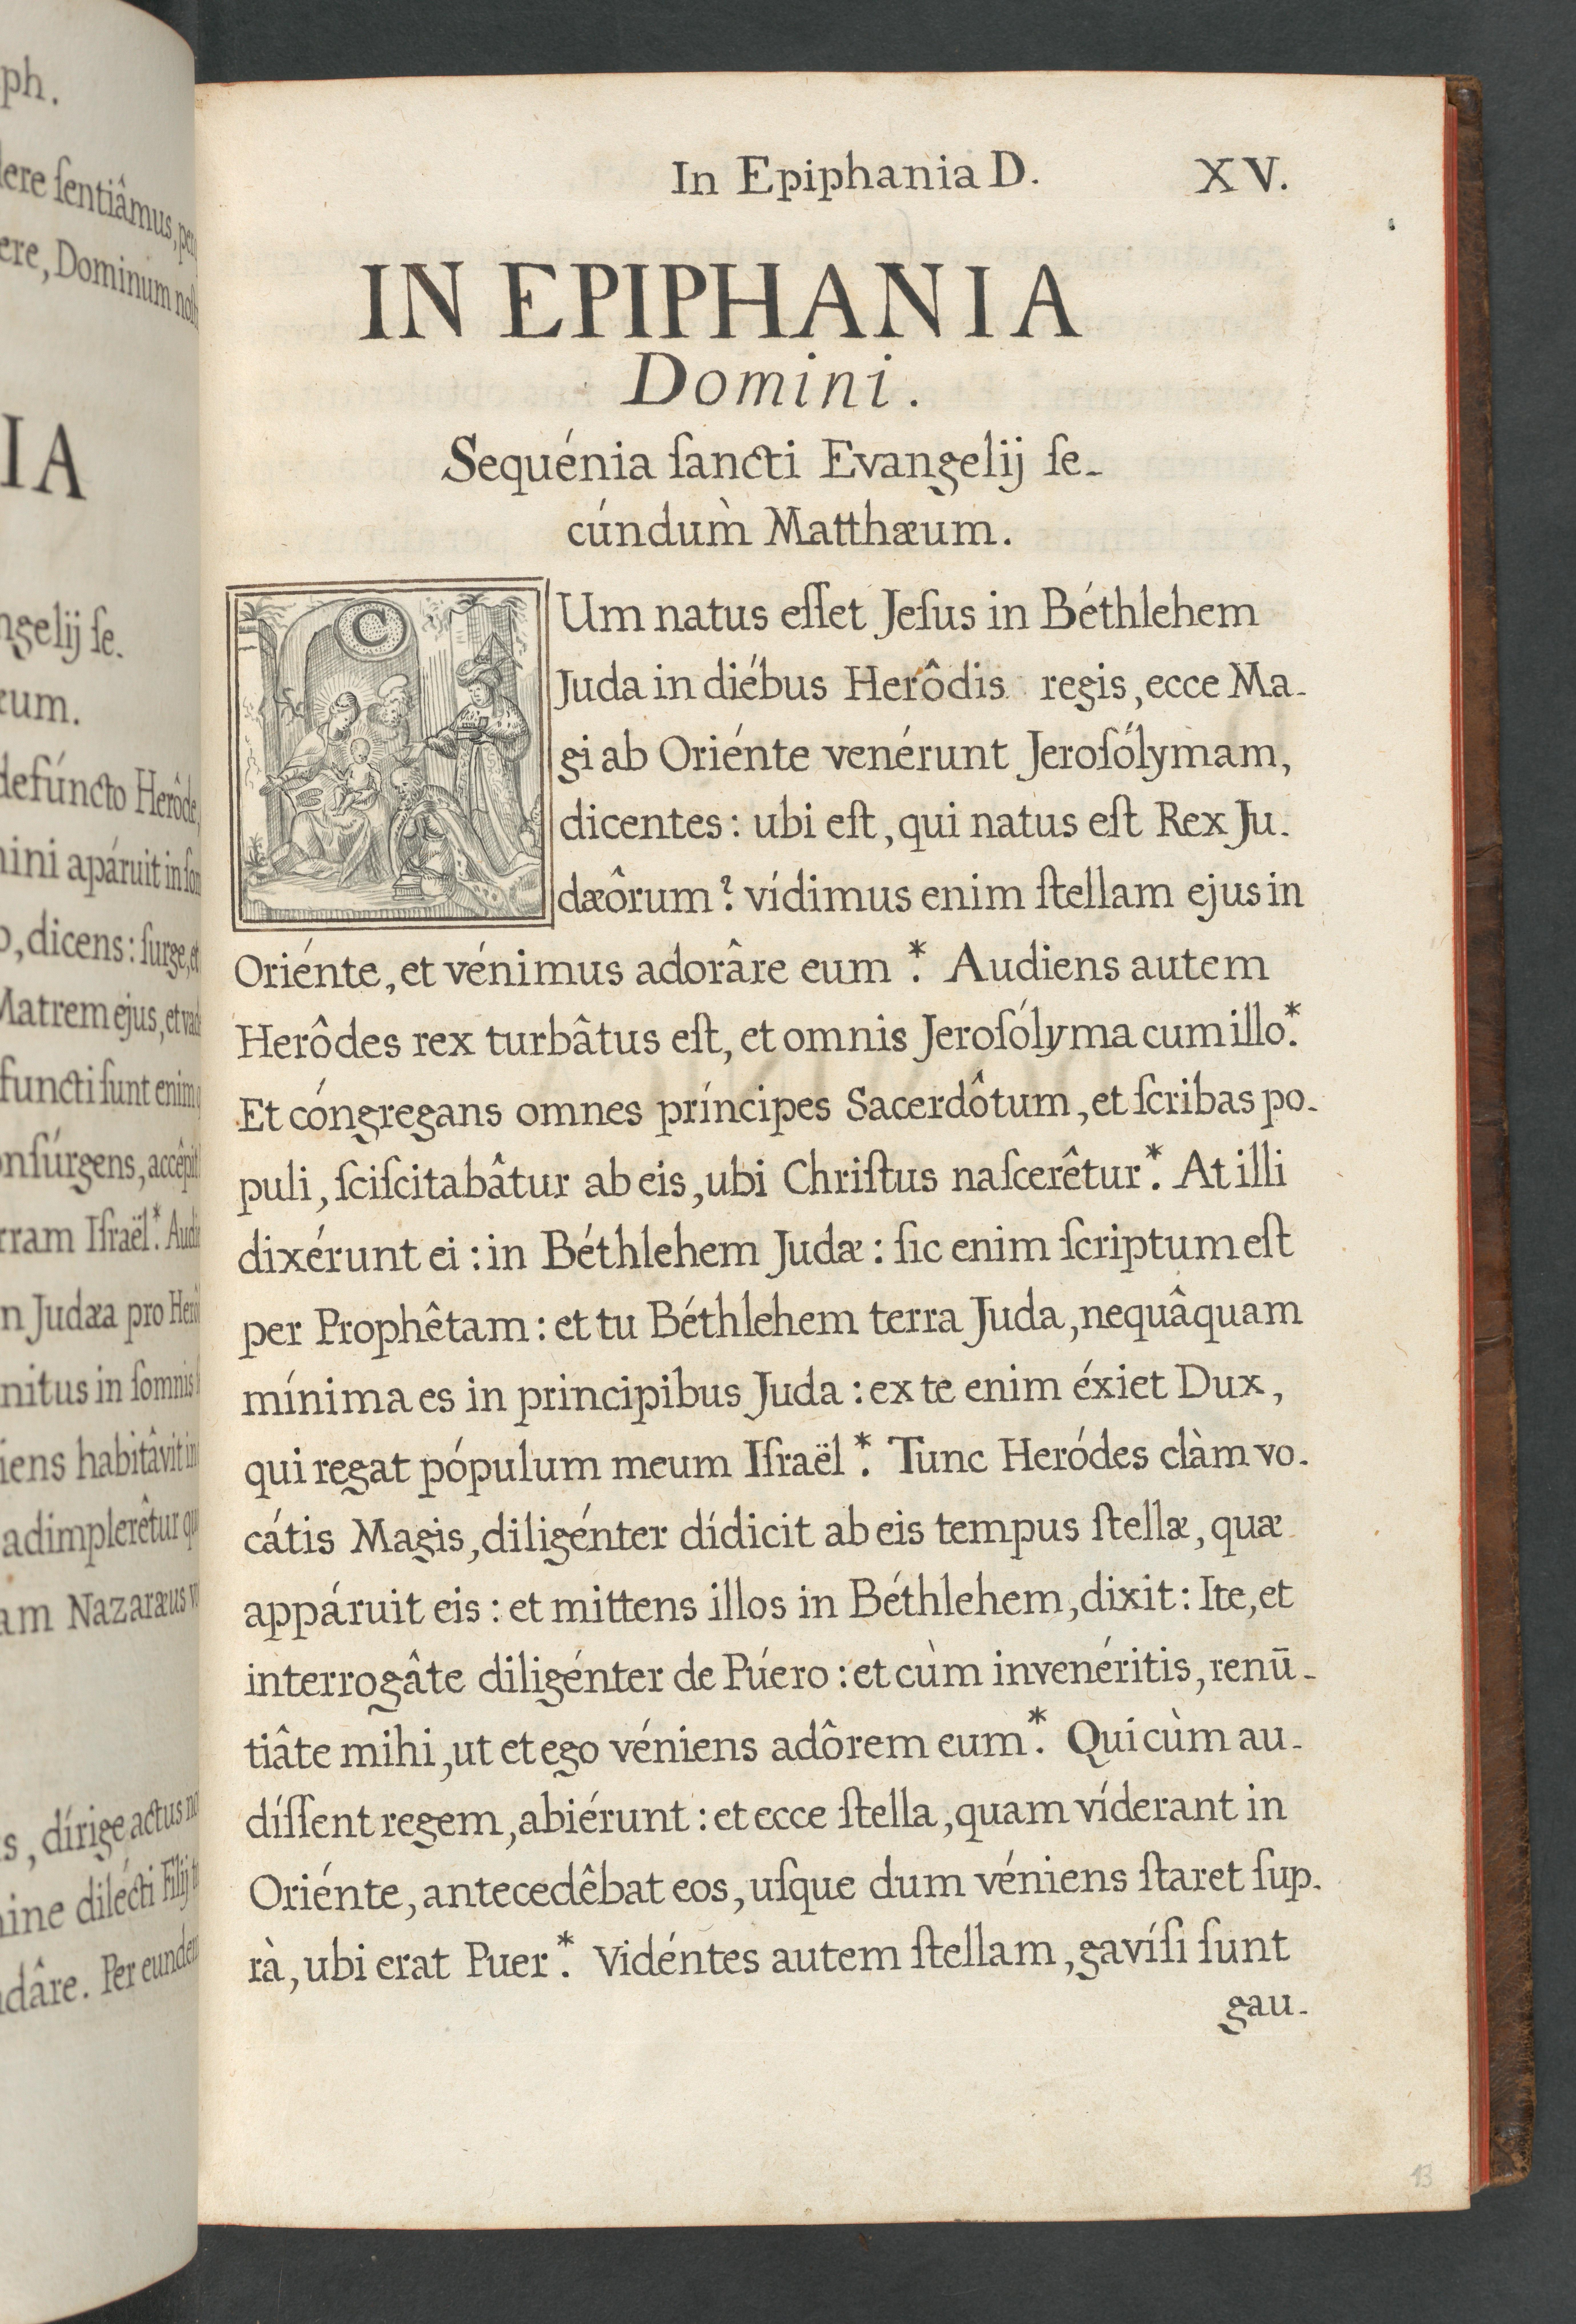 ph.
dere ſentiâmus, per
ere, Dominum noſt
IA
ngelij ſe-
æum.
defúncto Herôde,
mini apáruit in ſom
o, dicens: ſurge, et
Matrem ejus, et vad
functi ſunt enim q
onſúrgens, accêpit
rram Iſraël*. Audi
n Judæa pro Herô
nitus in ſomnis
iens habitâvit in
adimplerêtur qu
am Nazaræus v
s, dírige actus no
mine dilécti Filij tu
ndâre. Per eunde
In Epiphania D. XV.
IN EPIPHANIA
Domini.
Sequénia ſancti Evangelij ſe-
cúndum̀ Matthæum.
CUm natus eſſet Jeſus in Béthlehem
Juda in diébus Herôdis regis, ecce Ma-
gi ab Oriénte venérunt Jeroſólymam,
dicentes: ubi eſt, qui natus eſt Rex Ju-
dæôrum? vídimus enim ſtellam ejus in
Oriénte, et vénimus adorâre eum*. Audiens autem
Herôdes rex turbâtus eſt, et omnis Jeroſólyma cum illo*.
Et cóngregans omnes príncipes Sacerdôtum, et ſcribas po-
puli, ſciſcitabâtur ab eis, ubi Chriſtus naſcerêtur*. At illi
dixérunt ei: in Béthlehem Judæ: ſic enim ſcriptum eſt
per Prophêtam: et tu Béthlehem terra Juda, nequâquam
mínima es in principibus Juda: ex te enim éxiet Dux,
qui regat pópulum meum Iſraël*. Tunc Heródes clàm vo-
cátis Magis, diligénter dídicit ab eis tempus ſtellæ, quæ
appáruit eis: et mittens illos in Béthlehem, dixit: Ite, et
interrogâte diligénter de Púero: et cùm invenéritis, renū-
tiâte mihi, ut et ego véniens adôrem eum*. Qui cùm au-
díſſent regem, abiérunt: et ecce ſtella, quam víderant in
Oriénte, antecedêbat eos, uſque dum véniens ſtaret ſup-
rà, ubi erat Puer*. Vidéntes autem ſtellam, gavíſi ſunt
gau-
13